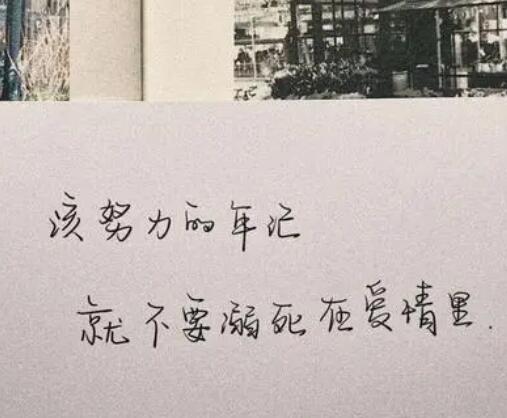 该努力的年纪
就不要溺死在爱情里.